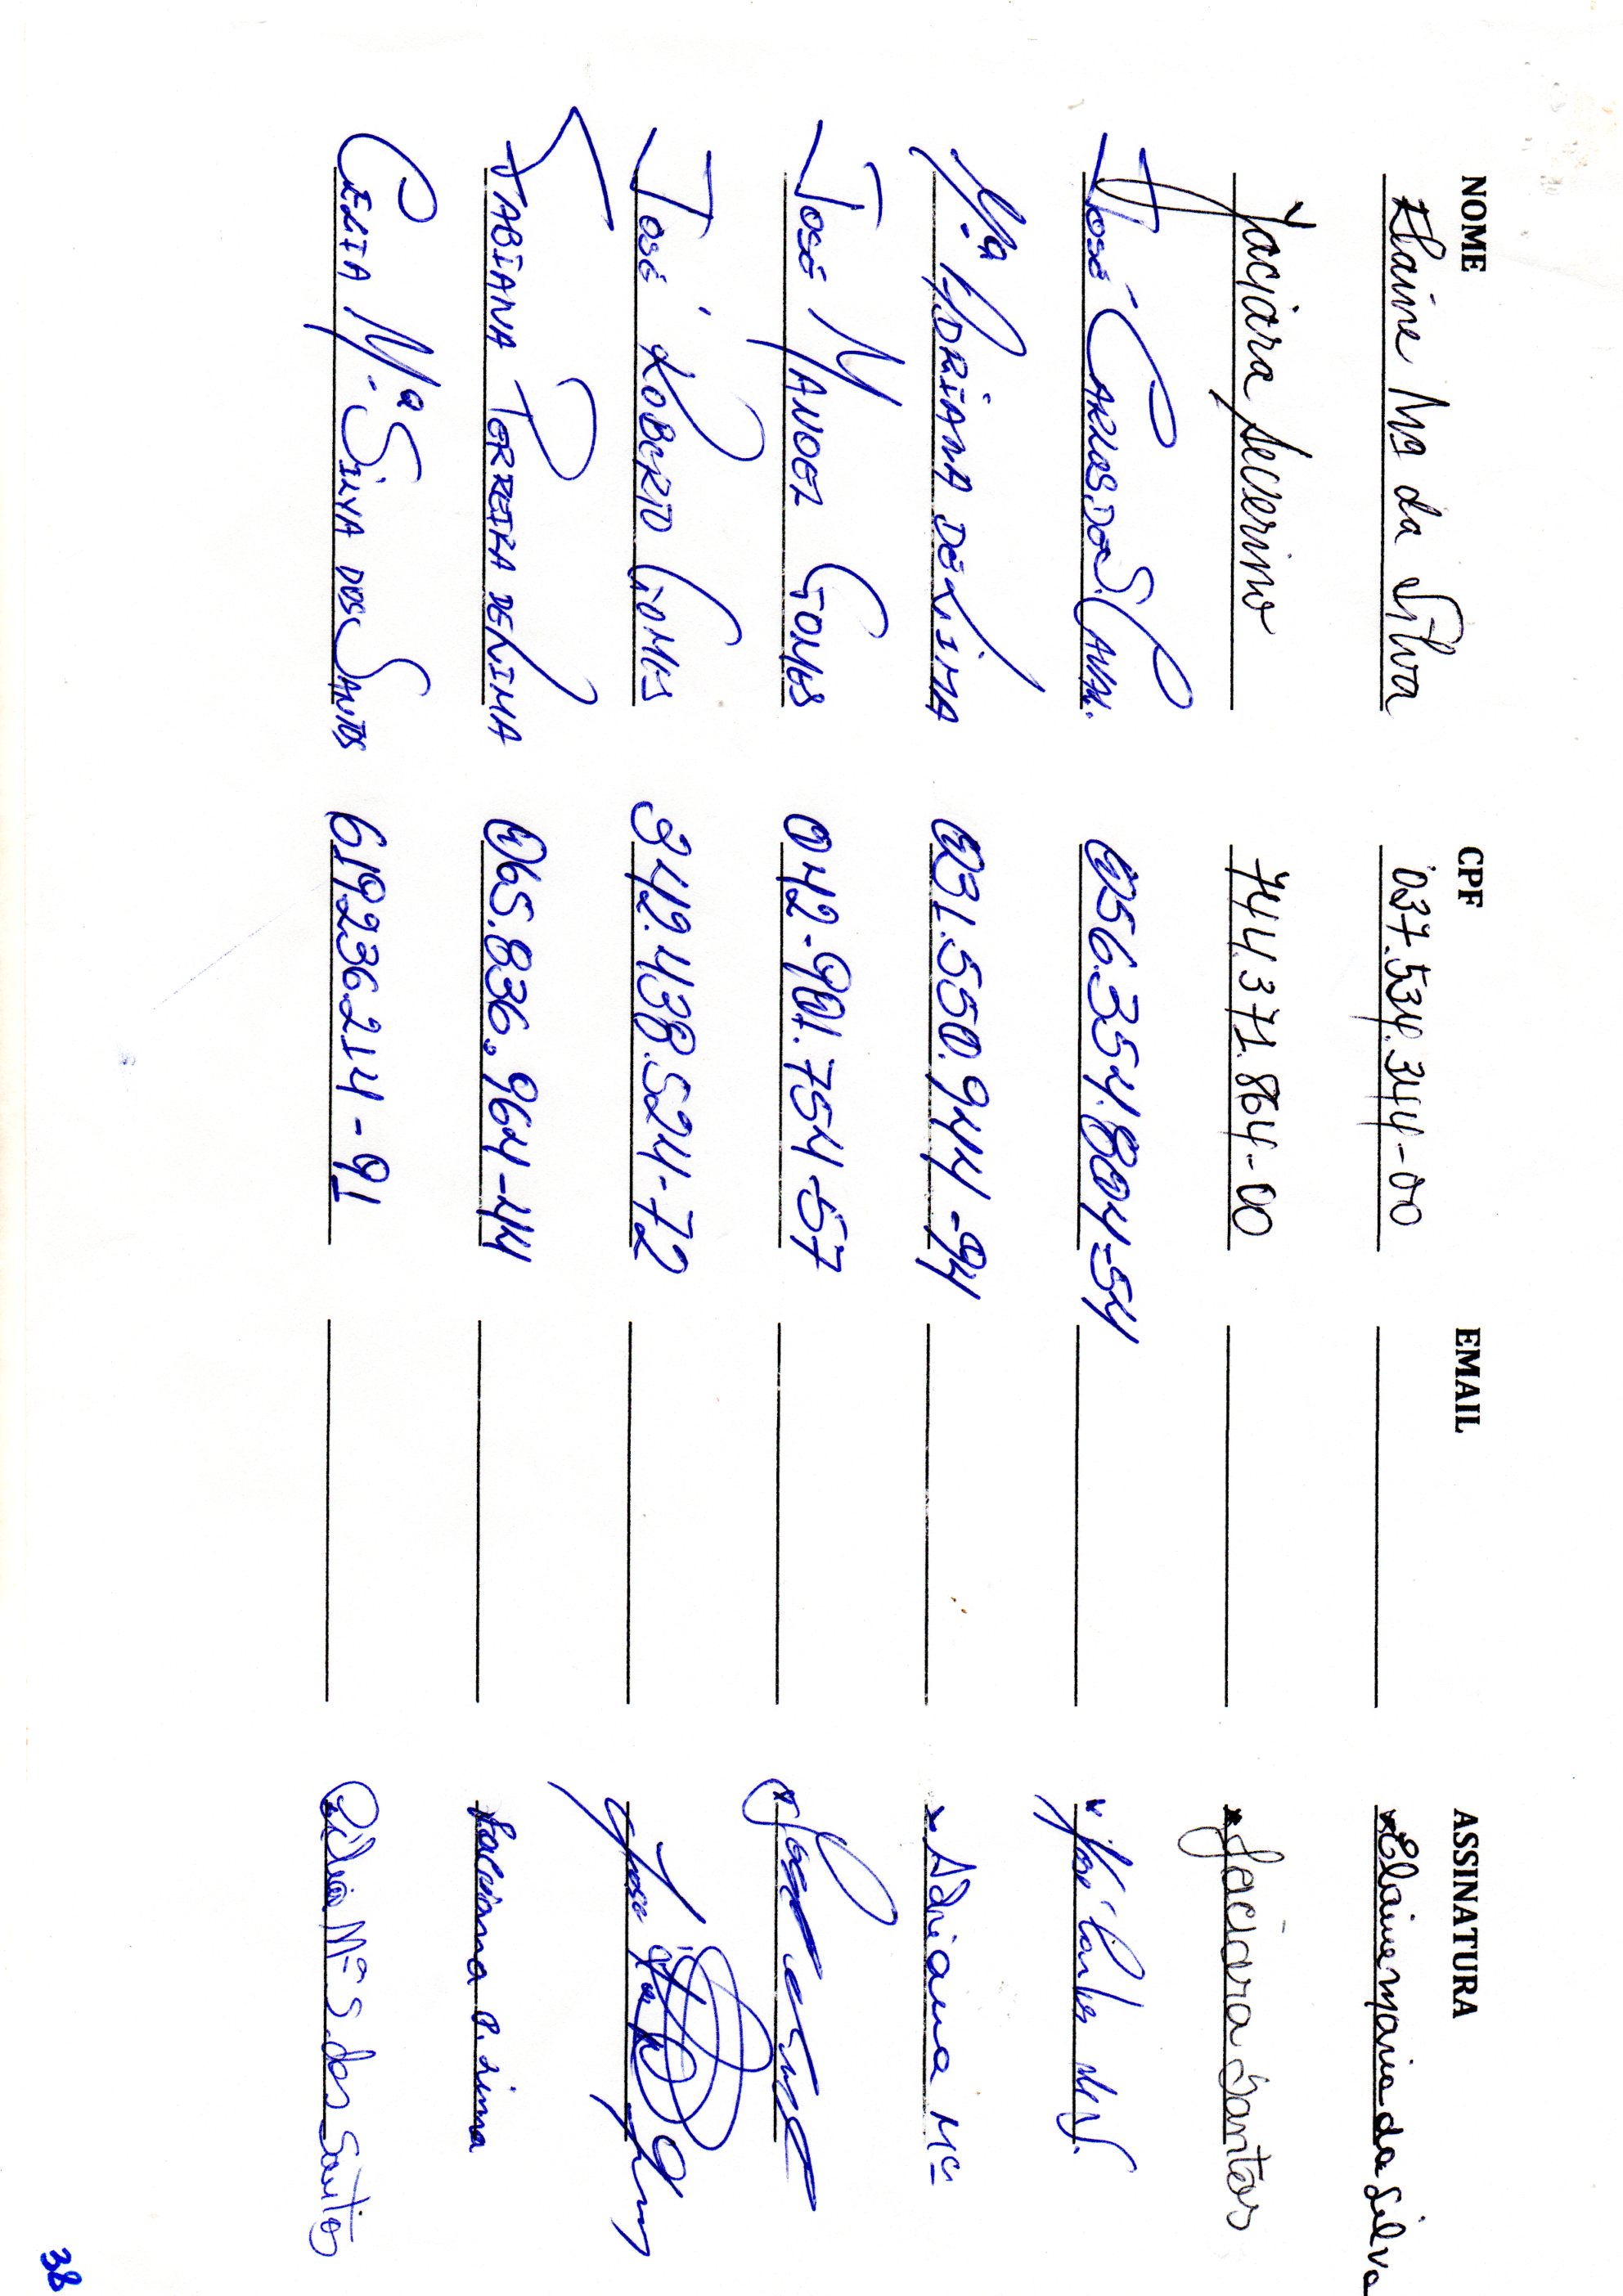 NOME CPF EMAIL ASSINATURA
Elaine Mª da Silva 037.534.344-00 Elaine maria da Silva
Jaciara Severino 744.371.864-00 Jaciara Santos
José Carlos dos S. 056.354.804-54 José Carlos
Mª Adriana de Lima 031.550.944-94 Adriana Mª
José Manoel Gomes 042-901.754-57
José Roberto Gomes 342.438.524-72
Fabiana Ferreira de Lima 065.836.964-44 Fabiana P. Lima
Celia Mª Silva dos Santos 619.236.214-91 Célia Mª S. dos Santos
38